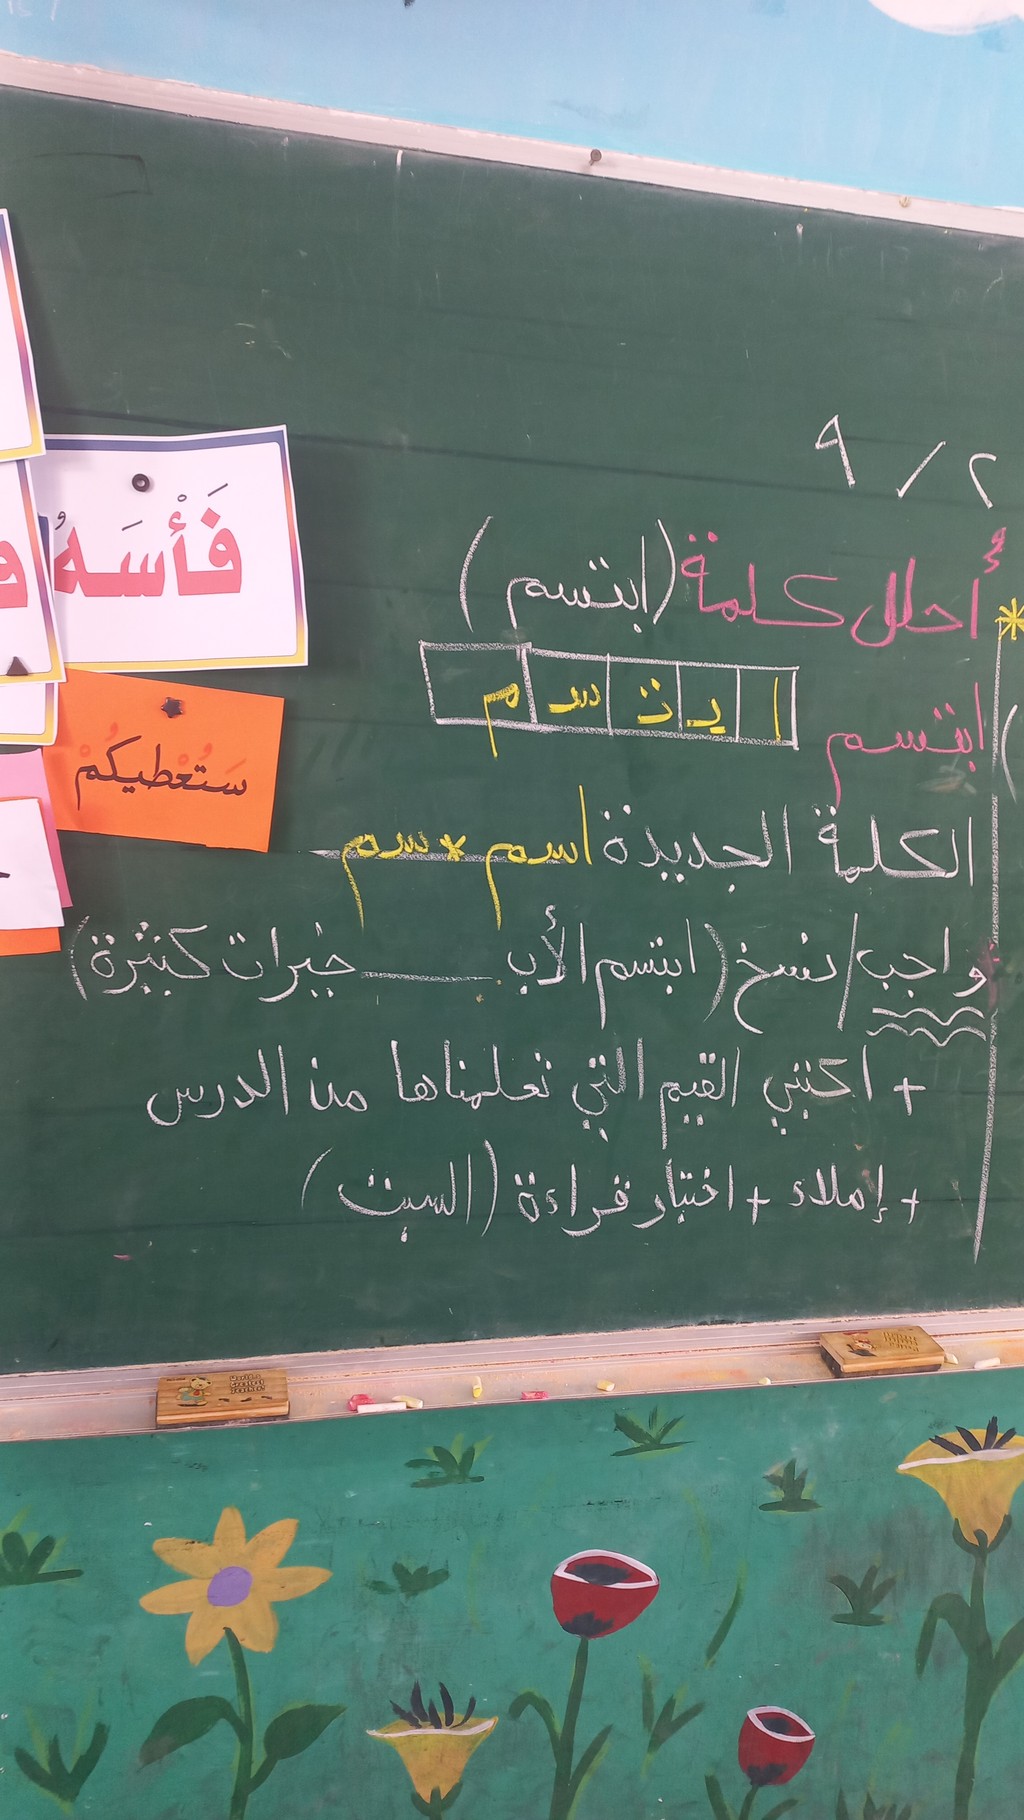 ٩ / ٢
* أحلل كلمة (ابتسم)
ابتسم
ا بـ تـ سـ م
الكلمة الجديدة اسم * سم
واجب / نسخ (ابتسم الأب ـــــــ خيرات كثيرة)
+ اكتبي القيم التي تعلمناها من الدرس
+ إملاء + اختبار قراءة (السبت)
فَأْسَهُ
سَتُعْطيكُمْ